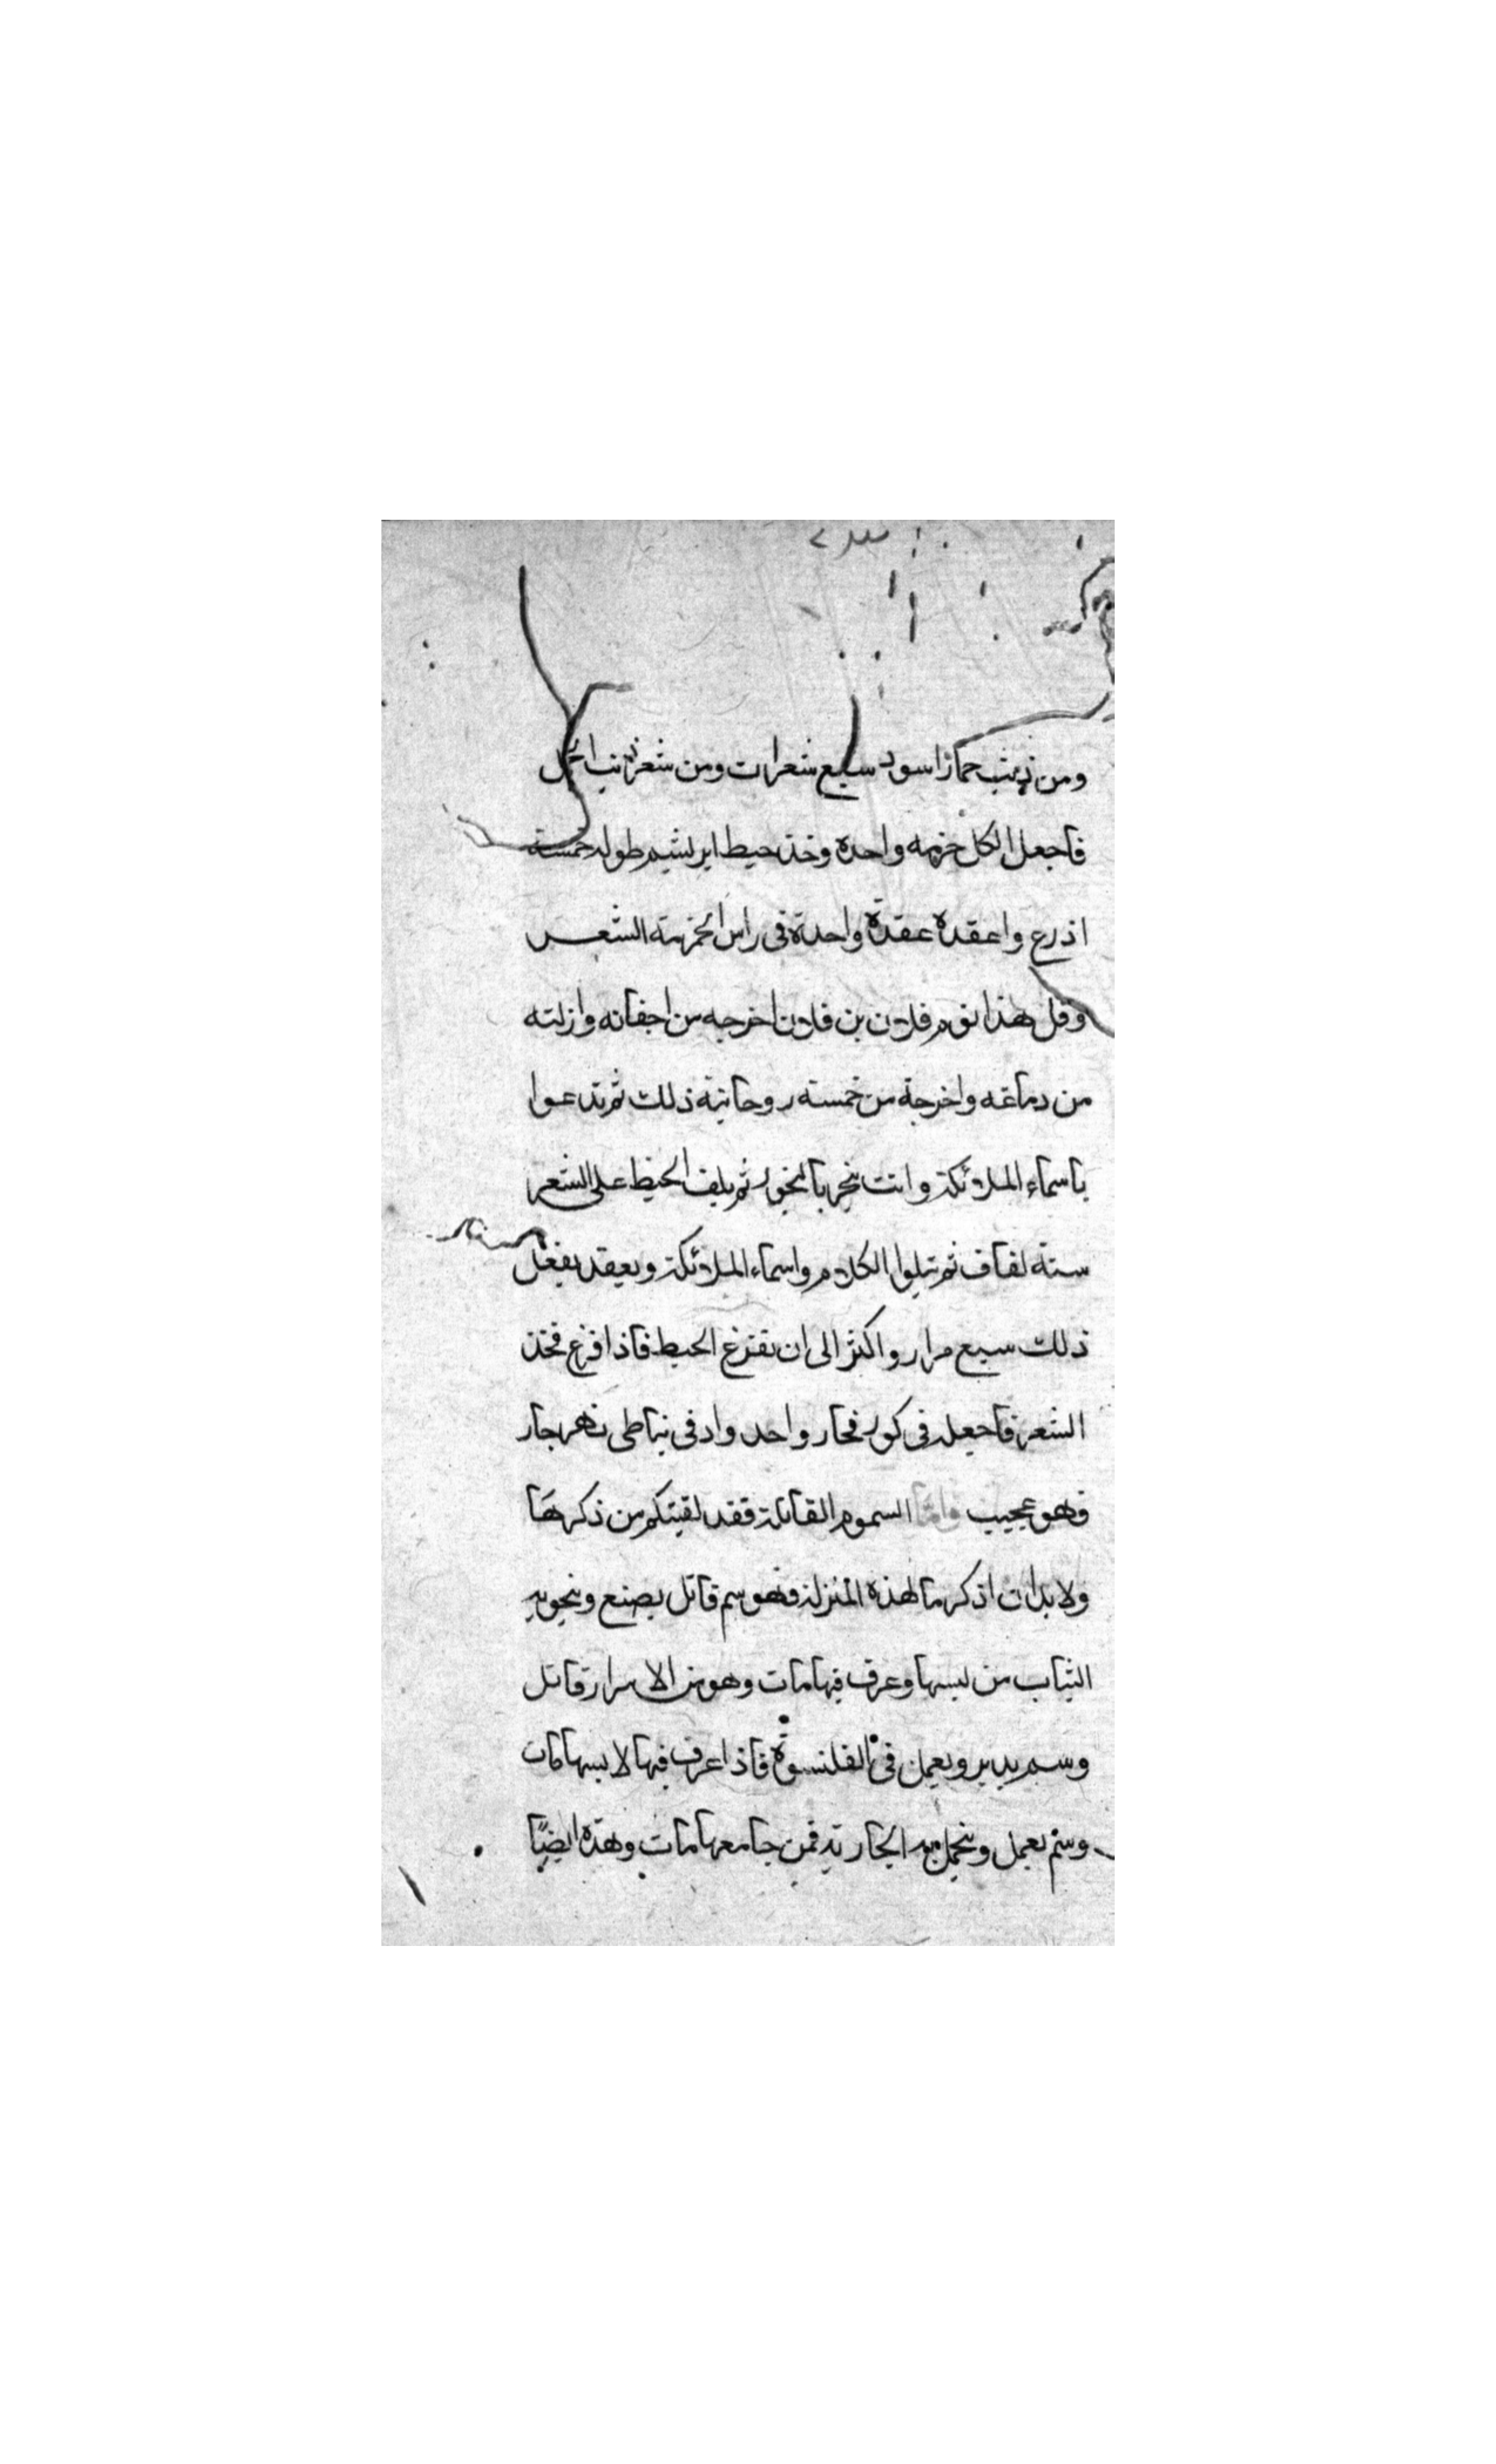 ومن ذنب حمار اسود سبع شعرات ومن شعر ذنب الجمل
فاجعل الكل حزمه واحده وخذ خيط ابريشيم طوله خمسة
اذرع واعقده عقدة واحدة فى راس الحزمته الشعر
وقل هذا نوم فلان بن فلان اخرجه من اجفانه وازلته
من دماغه واخرجة من خمسته روحانية ذلك ثم تدعوا
باسماء الملائكة وانت تبخر بالبخور ثم يلف الخيط على الشعر
ستة لفاف ثم تتلوا الكلام واسماء الملائكة ويعقد يفعل
ذلك سبع مرار واكثر الى ان تفرغ الخيط فاذا فرغ فخذ
الشعر فاجعله فى كوز فخار واحد وادفى شاطى نهر جار
فهو عجيب واما السموم القاتلة فقد لقيتكم من ذكرها
ولا بد ان اذكر ما لهذه المنزلة فهو سم قاتل يصنع وينجو به
الثياب من لبسها وعرق فيها مات وهو من الاسرار قاتل
وسم يدبر ويعمل فى القلنسوة فاذا عرق فيها لابسها مات
وسم يعمل ويتحمل به الجارية فمن جامعها مات وهذه ايضًا